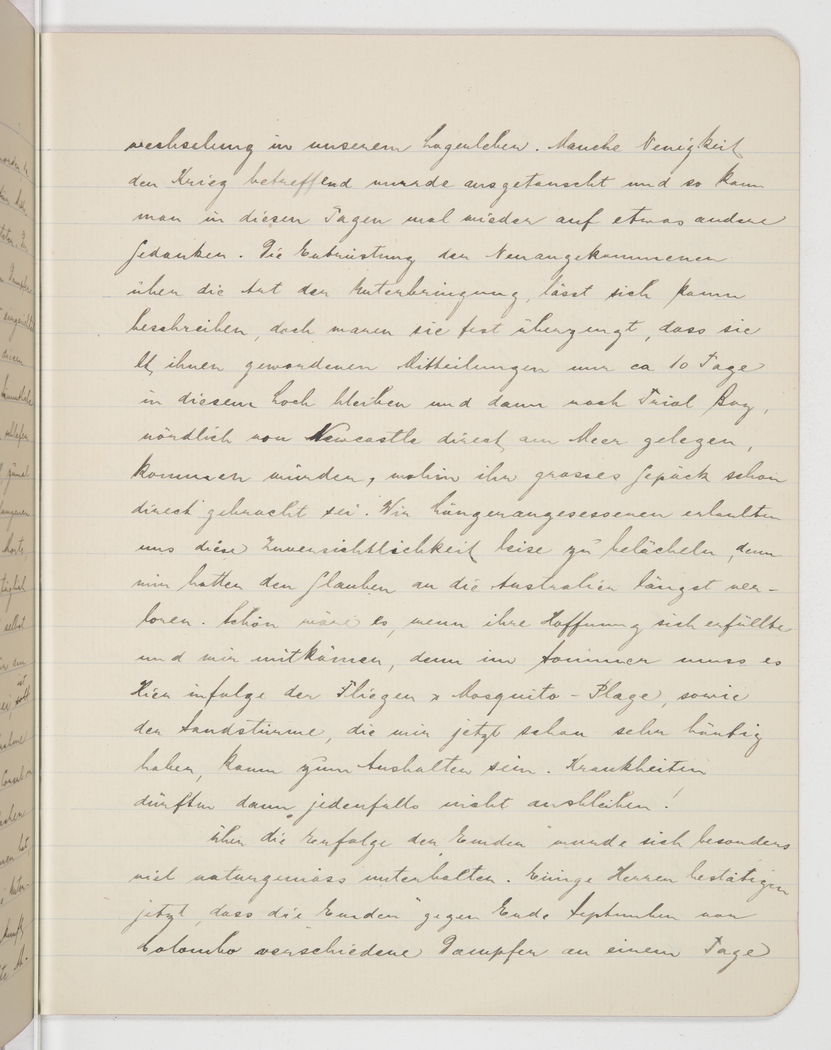 wechselung in unserem Lagerleben. Manche Neuigkeit
den Krieg betreffend wurde ausgetauscht und so kam
man in diesen Tagen mal wieder auf etwas andere
Gedanken. Die Entrüstung der Neuangekommenen
über die Art der Unterbringung lässt sich kaum
beschreiben, doch waren sie fest überzeugt, dass sie
lt. ihnen gewordenen Mitteilungen nur ca 10 Tage
in diesem Loch bleiben und dann nach Trial Bay,
nördlich von Newcastle direct am Meer gelegen,
kommen würden, wohin ihr grosses Gepäck schon
direct gebracht sei. Wir Längerangesessenen erlaubten
uns diese Zuversichtlichkeit leise zu belächeln, denn
wir hatten den Glauben an die Australier längst ver-
loren. Schön wäre es, wenn ihre Hoffnung sich erfüllte
und wir mitkämen, denn im Sommer muss es
hier infolge der Fliegen & Mosquito-Plage, sowie
der Sandstürme, die wir jetzt schon sehr häufig
haben, kaum zum Aushalten sein. Krankheiten
dürften dann jedenfalls nicht ausbleiben!
Über die Erfolge der „Emden" wurde sich besonders
viel naturgemäss unterhalten. Einige Herren bestätigen
jetzt, dass die „Emden" gegen Ende September von
Colombo verschiedene Dampfer an einem Tage